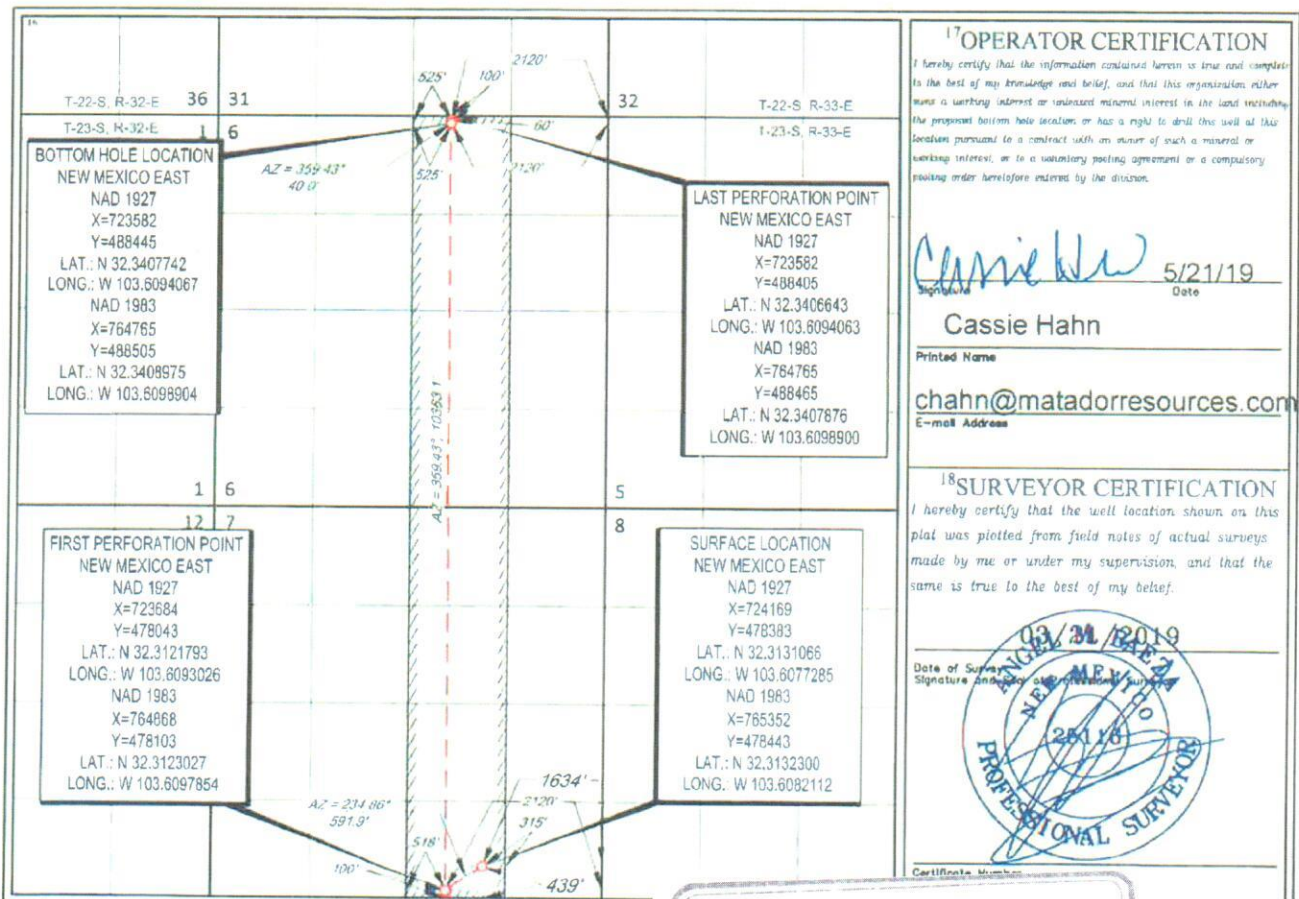 16
525'
100'
2120'
T-22-S, R-32-E 36 31
32 T-22-S, R-33-E
T-23-S, R-32-E 1 6
60'
T-23-S, R-33-E
525'
2120'
AZ = 359.43°
40.0'
BOTTOM HOLE LOCATION
NEW MEXICO EAST
NAD 1927
X=723582
Y=488445
LAT.: N 32.3407742
LONG.: W 103.6094067
NAD 1983
X=764765
Y=488505
LAT.: N 32.3408975
LONG.: W 103.6098904
LAST PERFORATION POINT
NEW MEXICO EAST
NAD 1927
X=723582
Y=488405
LAT.: N 32.3406643
LONG.: W 103.6094063
NAD 1983
X=764765
Y=488465
LAT.: N 32.3407876
LONG.: W 103.6098900
AZ = 359.43°, 10363.1
1 6
5
12 7
8
FIRST PERFORATION POINT
NEW MEXICO EAST
NAD 1927
X=723684
Y=478043
LAT.: N 32.3121793
LONG.: W 103.6093026
NAD 1983
X=764868
Y=478103
LAT.: N 32.3123027
LONG.: W 103.6097854
SURFACE LOCATION
NEW MEXICO EAST
NAD 1927
X=724169
Y=478383
LAT.: N 32.3131066
LONG.: W 103.6077285
NAD 1983
X=765352
Y=478443
LAT.: N 32.3132300
LONG.: W 103.6082112
AZ = 234.86°
591.9'
1634'
2120'
315'
518'
100'
439'
17 OPERATOR CERTIFICATION
I hereby certify that the information contained herein is true and complete
to the best of my knowledge and belief, and that this organization either
owns a working interest or unleased mineral interest in the land including
the proposed bottom hole location or has a right to drill this well at this
location pursuant to a contract with an owner of such a mineral or
working interest, or to a voluntary pooling agreement or a compulsory
pooling order heretofore entered by the division.
5/21/19
Signature Date
Cassie Hahn
Printed Name
chahn@matadorresources.com
E-mail Address
18 SURVEYOR CERTIFICATION
I hereby certify that the well location shown on this
plat was plotted from field notes of actual surveys
made by me or under my supervision, and that the
same is true to the best of my belief.
03/21/2019
Date of Survey
Signature and Seal of Professional Surveyor
ANGEL M. BAEZA
NEW MEXICO
25116
PROFESSIONAL SURVEYOR
Certificate Number